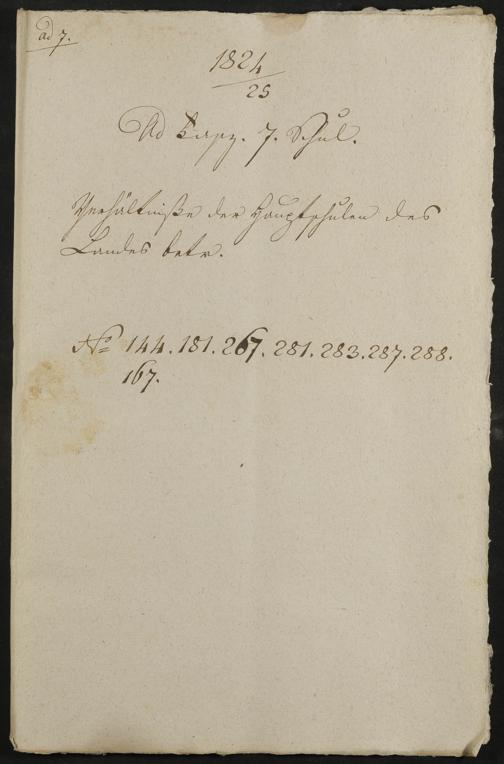 ad 7.
1824
25
Ad Kapz. 7. Schul.
Verhältniße der Hauptschulen des
Landes betr.
No 144. 181. 267. 281. 283. 287. 288.
167.